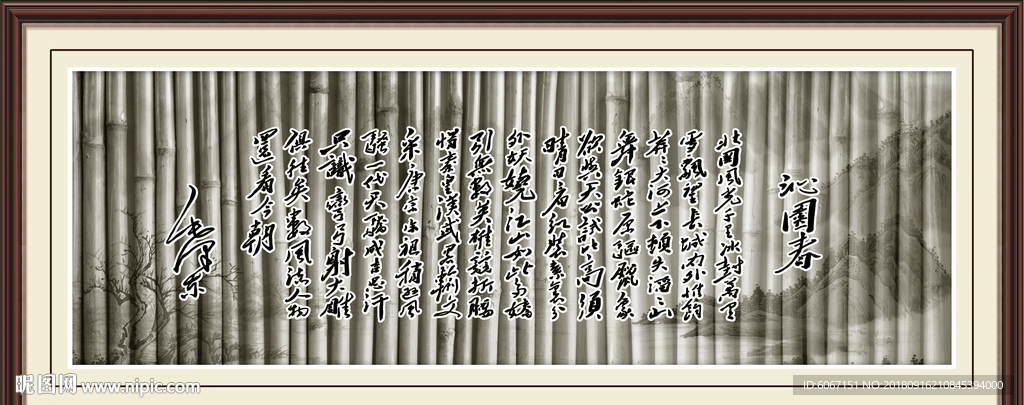 沁園春
北国风光千里冰封萬里
雪飘望长城内外惟餘
莽莽大河上下顿失滔滔山
舞银蛇原驱蜡象
欲与天公试比高须
晴日看红装素裹分
外妖娆江山如此多娇
引无数英雄竞折腰
惜秦皇汉武略输文
采唐宗宋祖稍逊风
骚一代天骄成吉思汗
只識弯弓射大雕
俱往矣数风流人物
還看今朝
毛泽东
昵图网 www.nipic.com
ID:6067151 NO:20180916210845394000